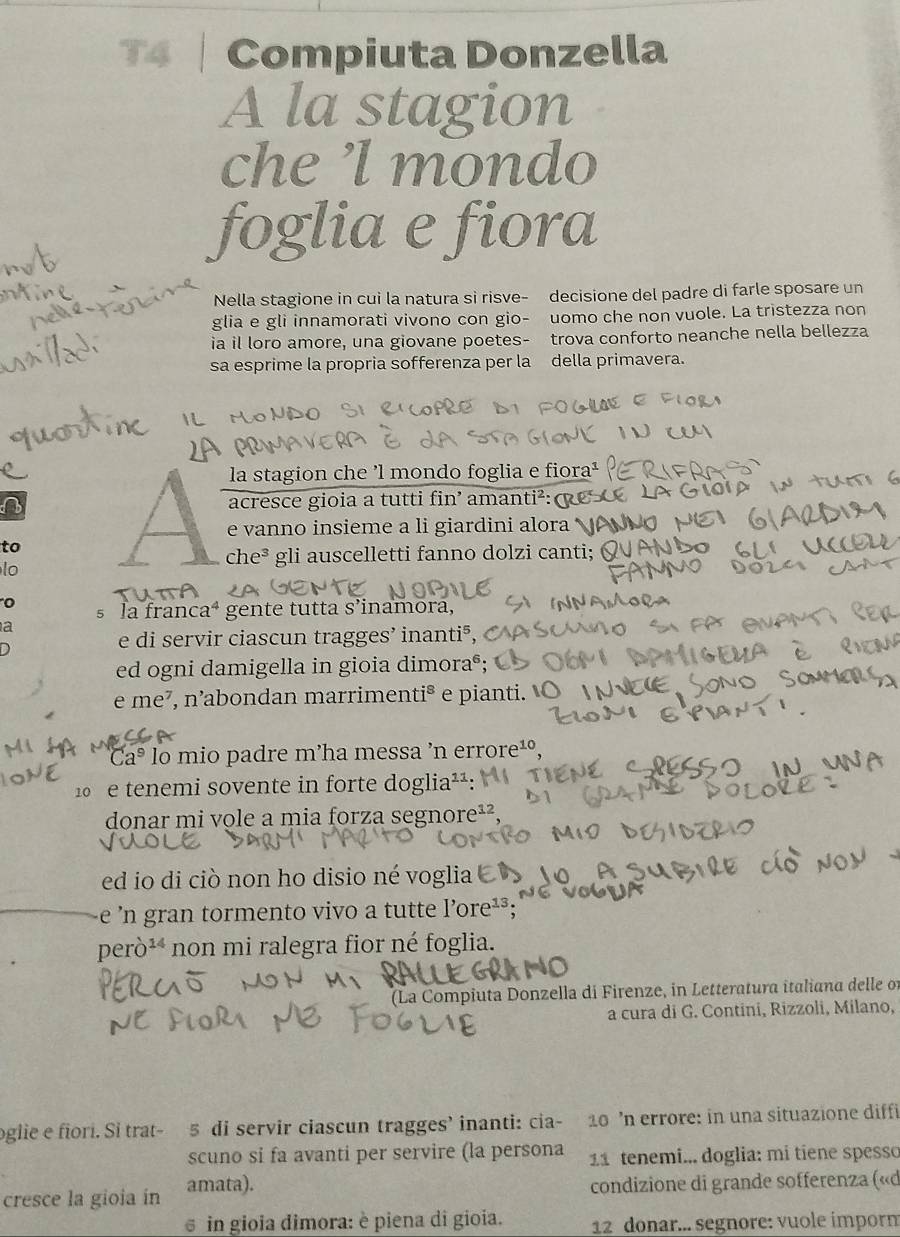 T4 | Compiuta Donzella
A la stagion
che 'l mondo
foglia e fiora
Nella stagione in cui la natura si risve-
glia e gli innamorati vivono con gio-
ia il loro amore, una giovane poetes-
sa esprime la propria sofferenza per la
decisione del padre di farle sposare un
uomo che non vuole. La tristezza non
trova conforto neanche nella bellezza
della primavera.
quartine
IL MONDO SI RICOPRE DI FOGLIE E FIORI
LA PRIMAVERA È LA STAGIONE IN CUI
A la stagion che 'l mondo foglia e fiora¹ PERIFRASI
acresce gioia a tutti fin' amanti²: CRESCE LA GIOIA IN TUTTI G
e vanno insieme a li giardini alora VANNO NEI GIARDINI
che³ gli auscelletti fanno dolzi canti; QUANDO GLI UCCELLI
FANNO DOLCI CANT
to
lo
TUTTA LA GENTE NOBILE
5 la franca⁴ gente tutta s'inamora, SI INNAMORA
e di servir ciascun tragges' inanti⁵, CIASCUNO SI FA AVANTI PER
ed ogni damigella in gioia dimora⁶; ED OGNI DAMIGELLA È PIENA
e me⁷, n'abondan marrimenti⁸ e pianti. IO INVECE, SONO SOMMERSA
E PIANTI.
MI HA MESSA
Ca⁹ lo mio padre m'ha messa 'n errore¹⁰,
IONE
10 e tenemi sovente in forte doglia¹¹: MI TIENE SPESSO IN UNA
DI GRANDE DOLORE:
donar mi vole a mia forza segnore¹²,
VUOLE DARMI MARITO CONTRO MIO DESIDERIO
ed io di ciò non ho disio né voglia ED IO A SUBIRE CIÒ NON
NÉ VOGLIA
e 'n gran tormento vivo a tutte l'ore¹³;
però¹⁴ non mi ralegra fior né foglia.
PERCIÒ NON MI RALLEGRANO
NE FIORI NE FOGLIE
(La Compiuta Donzella di Firenze, in Letteratura italiana delle or
a cura di G. Contini, Rizzoli, Milano,
oglie e fiori. Si trat-
cresce la gioia in
5 di servir ciascun tragges' inanti: cia-
scuno si fa avanti per servire (la persona
amata).
6 in gioia dimora: è piena di gioia.
10 'n errore: in una situazione diffi
11 tenemi... doglia: mi tiene spesso
condizione di grande sofferenza («d
12 donar... segnore: vuole imporm